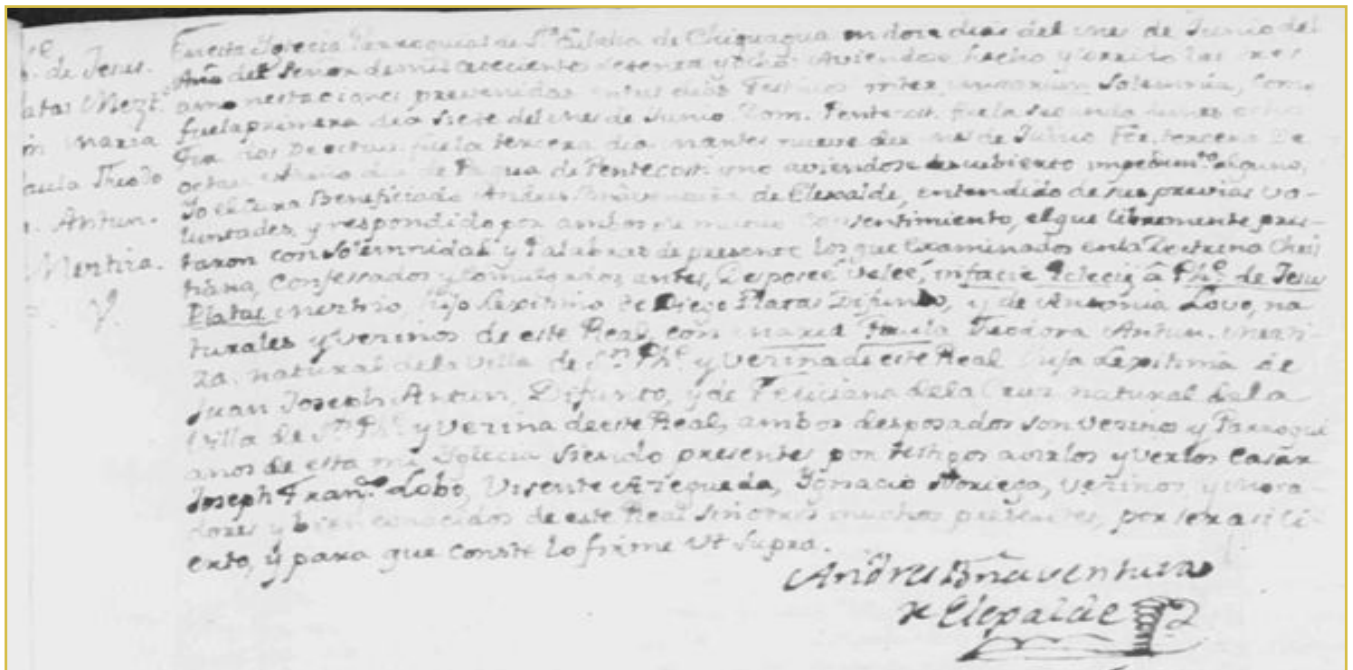 Ph.º de Jesus.
Platas Mezt.º
con Maria
Paula Theodo
ra Antun.
Mestiza.
V.
En esta Iglecia Parroquial de S.ta Eulalia de Chiguagua en dose dias del mes de Junio del
Año del Señor de mil setecientos setenza y ocho. Aviendose hecho y las tres
amonestaciones prevenidas en tres dias festivos inter missarum Solemnia, como
fue la primera dia siete del mes de Junio Dom. Pentecost. fue la segunda lunes ocho
la tercera dia martes nueve del mes de Junio Fer. tercera de
octa de Pasqua de Pentecost. y no aviendose descubierto impedim.to alguno,
Yo el Cura Beneficiado Andres Bnaventura de Elexalde, entendido de sus previas vo-
luntades, y respondido por ambos de mutuo consentimiento, el que libremente pres-
taron con solemnidad y Palabras de presente los que examinados en la Doctrina Chris
tiana, Confessados y Comulgados antes, Desposé y velé, infacie Eclecie â Ph.º de Jesus
Platas mestizo, hijo Lexitimo de Diego Platas Difunto, y de Antonia Love, na
turales y vezinos de este Real, con Maria Paula Teodora Antun. mesti-
za. natural de la Villa de S.n Ph.e y vezina de este Real hija Lexitima de
Juan Joseph Antun, Difunto, y de Feliciana de la Cruz natural de la
Villa de S.n Ph.e y vezina de este Real, ambos desposados son vezinos y Parroqui
anos de esta mi Iglecia siendo presentes por testigos a oirlos y verlos Casar
Joseph Fran.co Lobo, Visente Azegueda, Ignacio Noriega, vezinos y mora-
dores y bien conocidos de este Real sin otros muchos presentes, por ser asi ci-
erto, y para que conste lo firme Ut supra.
Andres Bnaventura
de Elexalde